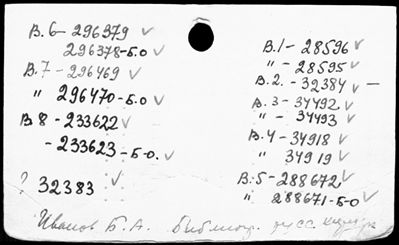 В.6 - 296379 ✓
296378-Б.О ✓
В.7 - 296469 ✓
" 296470-Б.О ✓
В 8 - 233622 ✓
- 233623-Б-О. ✓
? 32383 ✓
В.1 - 28596 ✓
" - 28595 ✓
В.2. - 32384 ✓ -
В.3 - 34492 ✓
" - 34493 ✓
В.4 - 34918 ✓
" 34919 ✓
В.5 - 288672 ✓
" 288671-Б.О ✓
Иванов Б.А. Библиогр. русс.